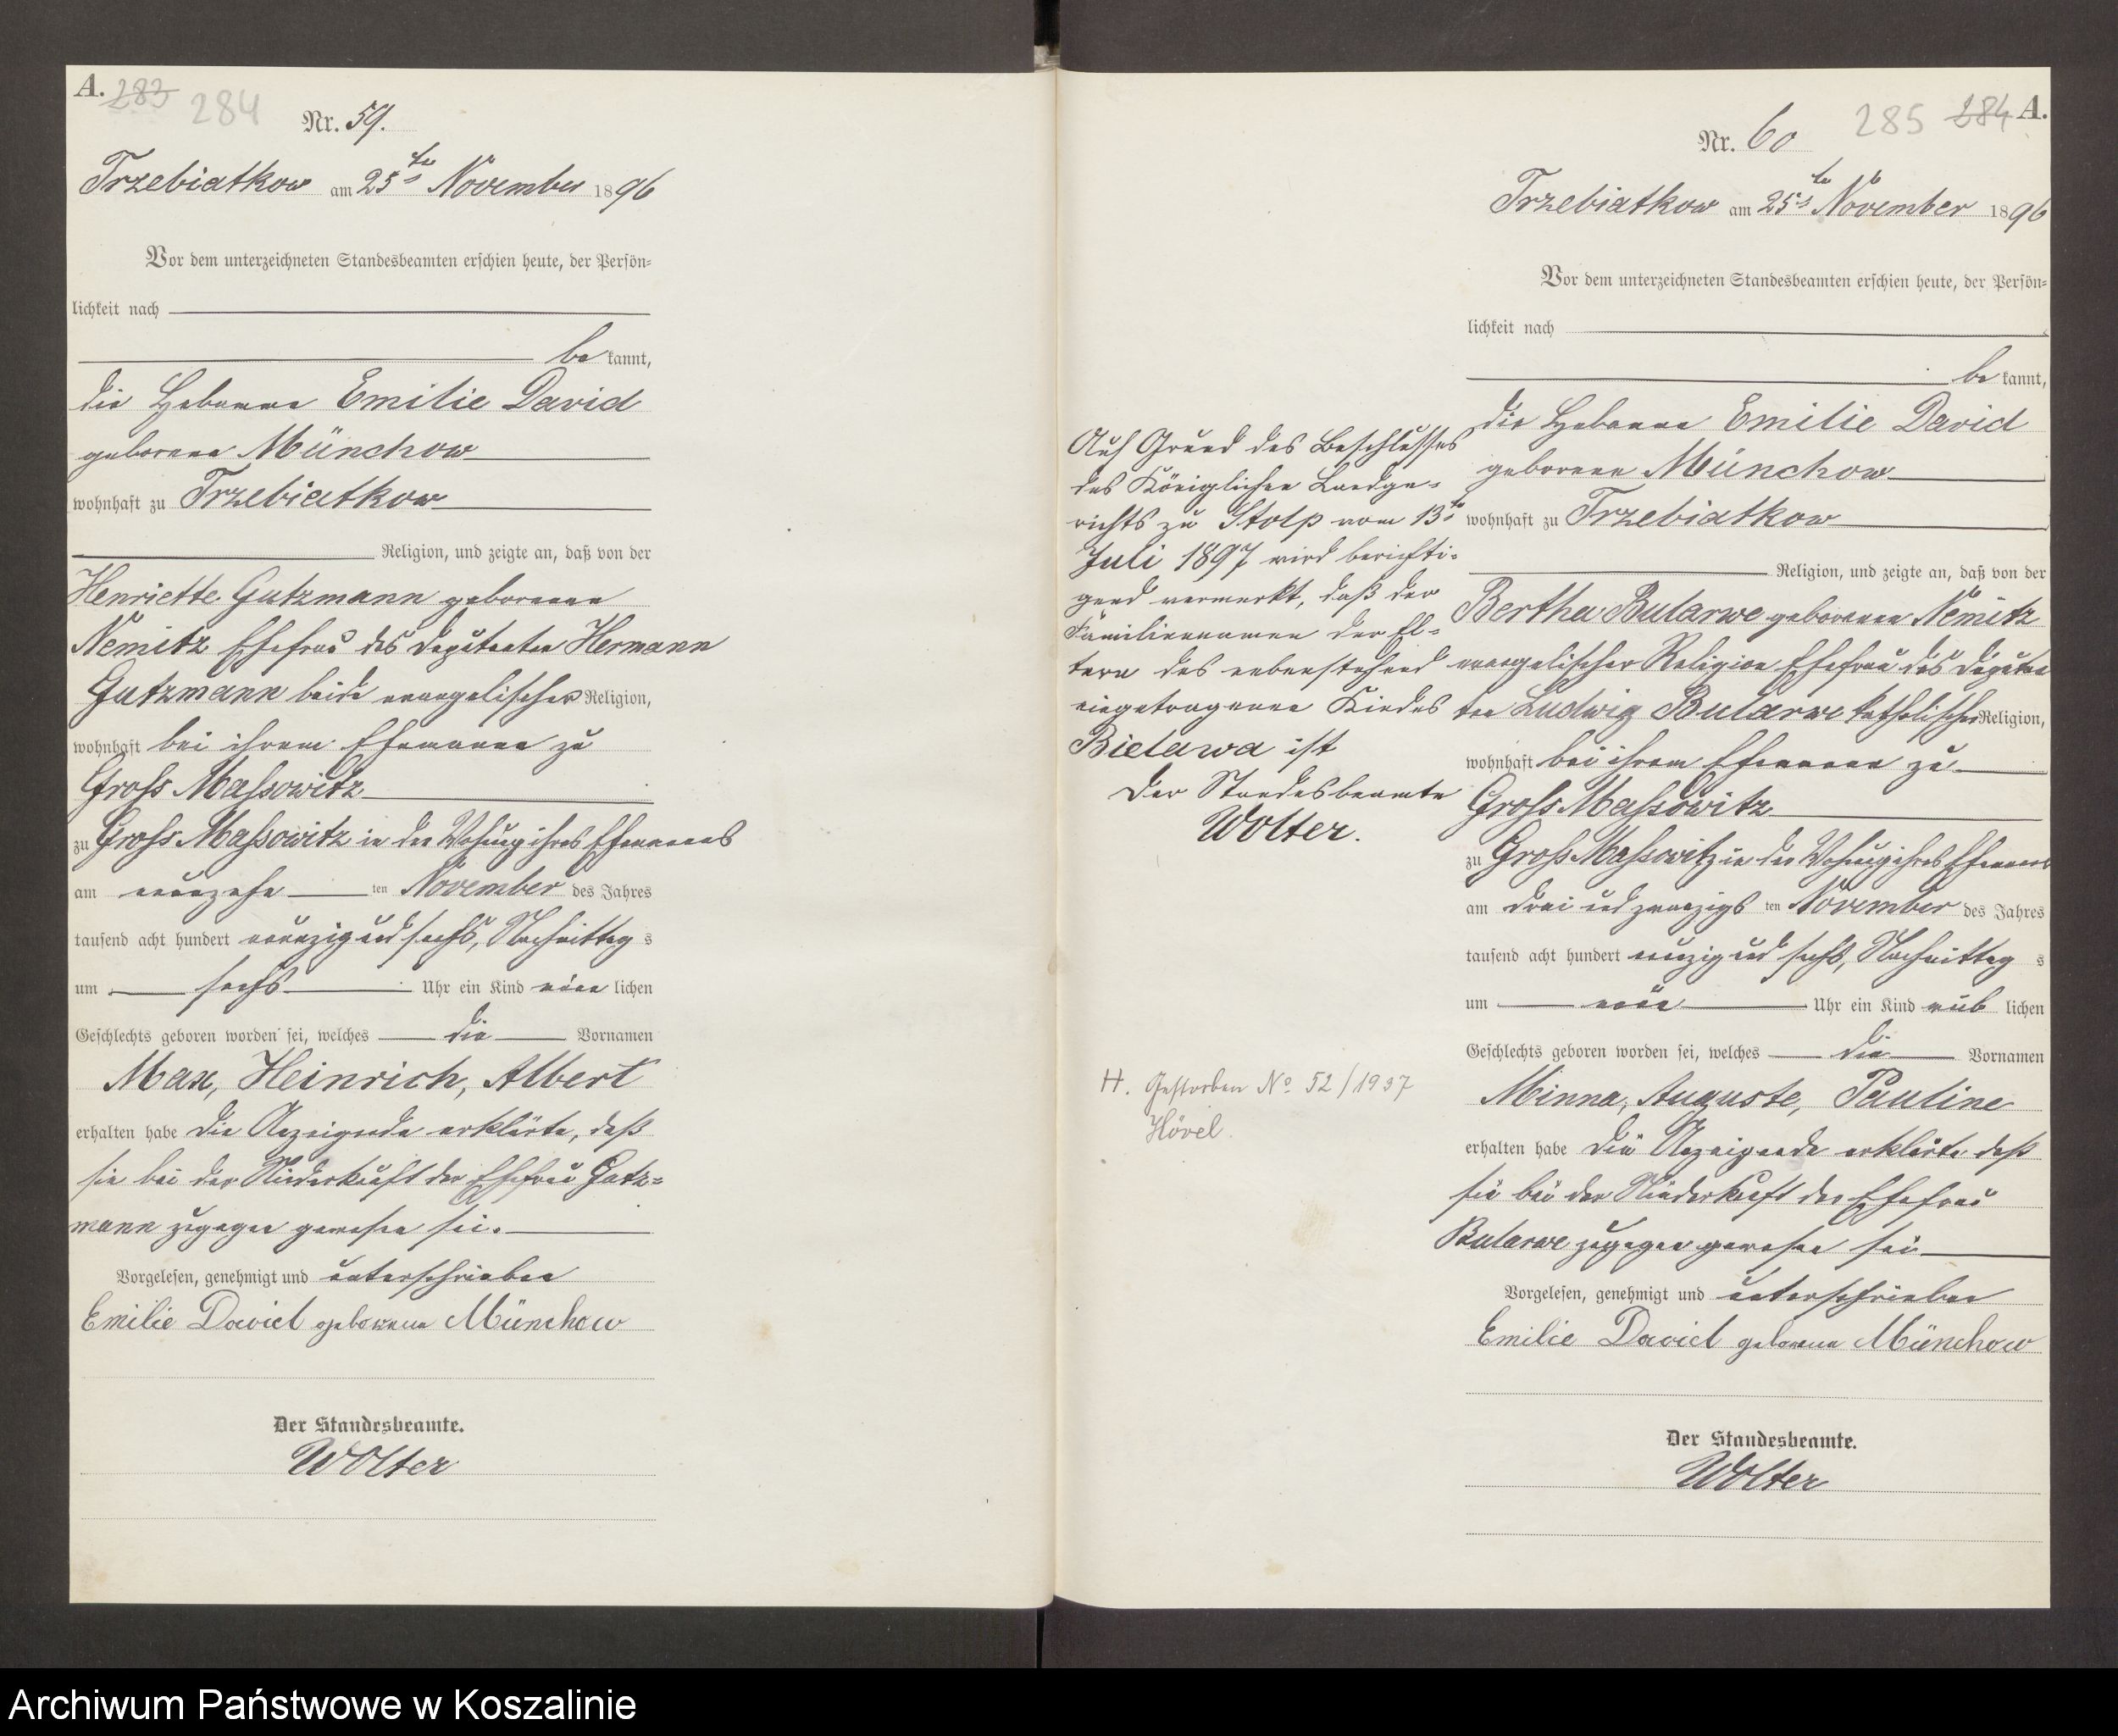 A. 283 284
Nr. 59.
Trzebiatkow am 25ten November 1896
Vor dem unterzeichneten Standesbeamten erschien heute, der Persön-
lichkeit nach
be kannt,
die Hebamme Emilie David
geborene Münchow
wohnhaft zu Trzebiatkow
Religion, und zeigte an, daß von der
Henriette Gutzmann geborenen
Nemitz Ehefrau des Deputanten Hermann
Gutzmann beide evangelischer Religion,
wohnhaft bei ihrem Ehemanne zu
Gross Massowitz
zu Gross Massowitz in der Wohnung ihres Ehemannes
am neunzehn ten November des Jahres
tausend acht hundert neunzig und sechs, Nachmittag s
um sechs Uhr ein Kind männ lichen
Geschlechts geboren worden sei, welches die Vornamen
Max, Heinrich, Albert
erhalten habe Die Anzeigende erklärte, daß
sie bei der Niederkunft der Ehefrau Gutz-
mann zugegen gewesen sei.
Vorgelesen, genehmigt und unterschrieben
Emilie David geborene Münchow
Der Standesbeamte.
Wolter
285 284 A.
Nr. 60
Trzebiatkow am 25ten November 1896
Vor dem unterzeichneten Standesbeamten erschien heute, der Persön-
lichkeit nach
be kannt,
die Hebamme Emilie David
geborene Münchow
wohnhaft zu Trzebiatkow
Religion, und zeigte an, daß von der
Bertha Bularwe geborenen Nemitz
evangelischer Religion Ehefrau des Deputan
ten Ludwig Bularwe katholischer Religion,
wohnhaft bei ihrem Ehemanne zu
Gross Massowitz
zu Gross Massowitz in der Wohnung ihres Ehemannes
am drei und zwanzigs ten November des Jahres
tausend acht hundert neunzig und sechs, Nachmittag s
um neun Uhr ein Kind weib lichen
Geschlechts geboren worden sei, welches die Vornamen
Minna, Auguste, Pauline
erhalten habe Die Anzeigende erklärte daß
sie bei der Niederkunft der Ehefrau
Bularwe zugegen gewesen sei
Vorgelesen, genehmigt und unterschrieben
Emilie David geborene Münchow
Der Standesbeamte.
Wolter
Auf Grund des Beschlusses
des Königlichen Landge-
richts zu Stolp vom 13ten
Juli 1897 wird berichti-
gend vermerkt, daß der
Familiennamen der El-
tern des nebenstehend
eingetragenen Kindes
Bielawa ist
Der Standesbeamte
Wolter.
H. Gestorben No 52/1937
Hövel
Archiwum Państwowe w Koszalinie